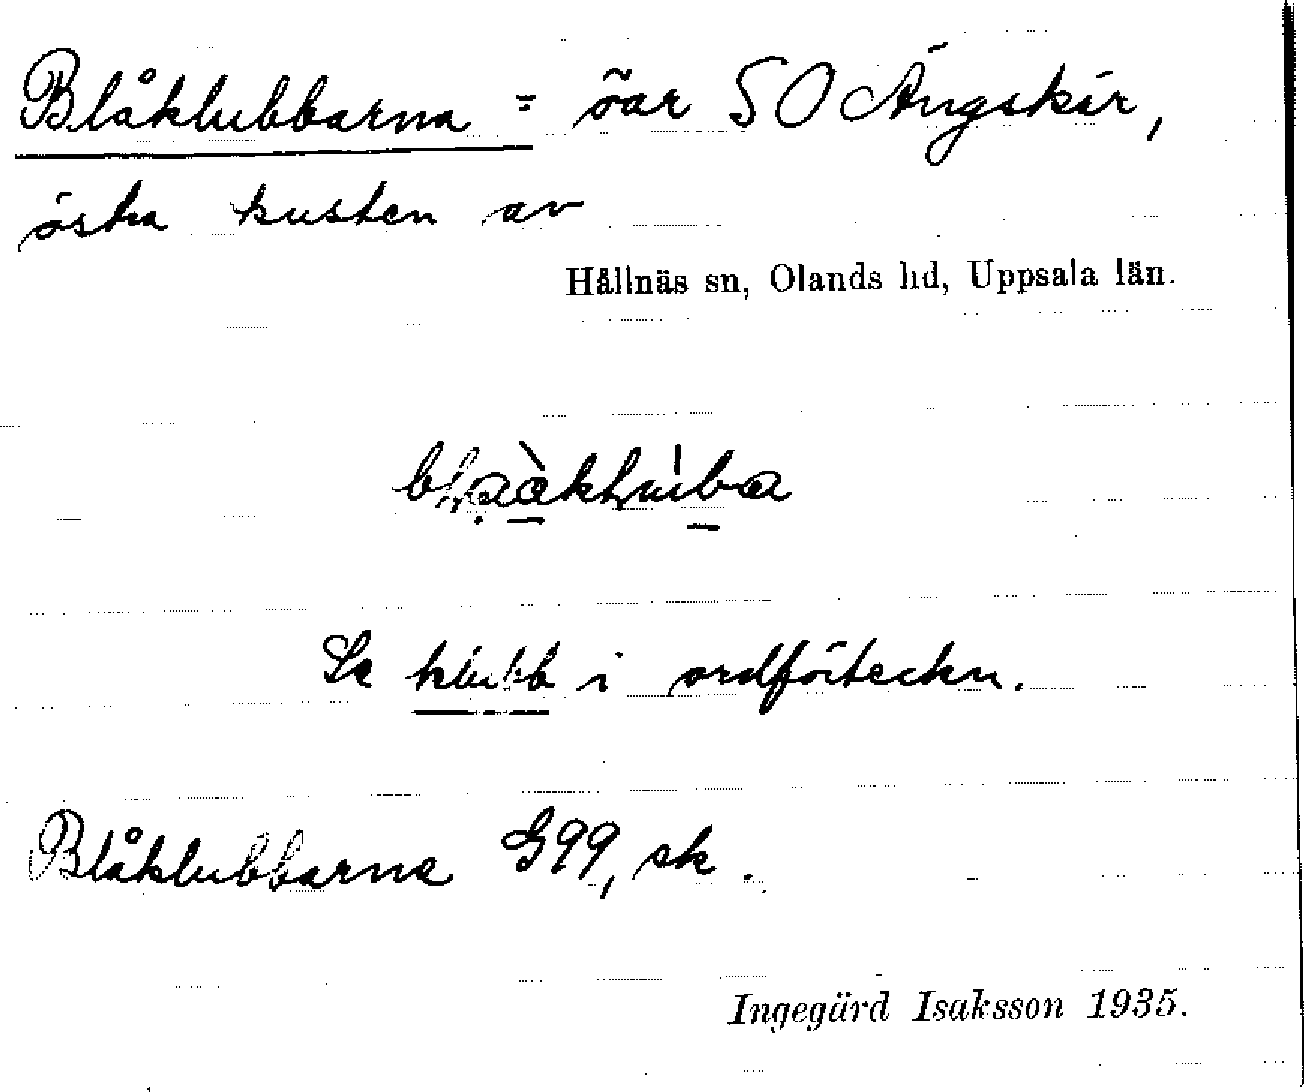 Blåklubbarna = öar SO Ängskär,
östra kusten av
Hållnäs sn, Olands hd, Uppsala län.
Se klubb i ordförteckn.
Blåklubbarna G99, sk.
Ingegärd Isaksson 1935.